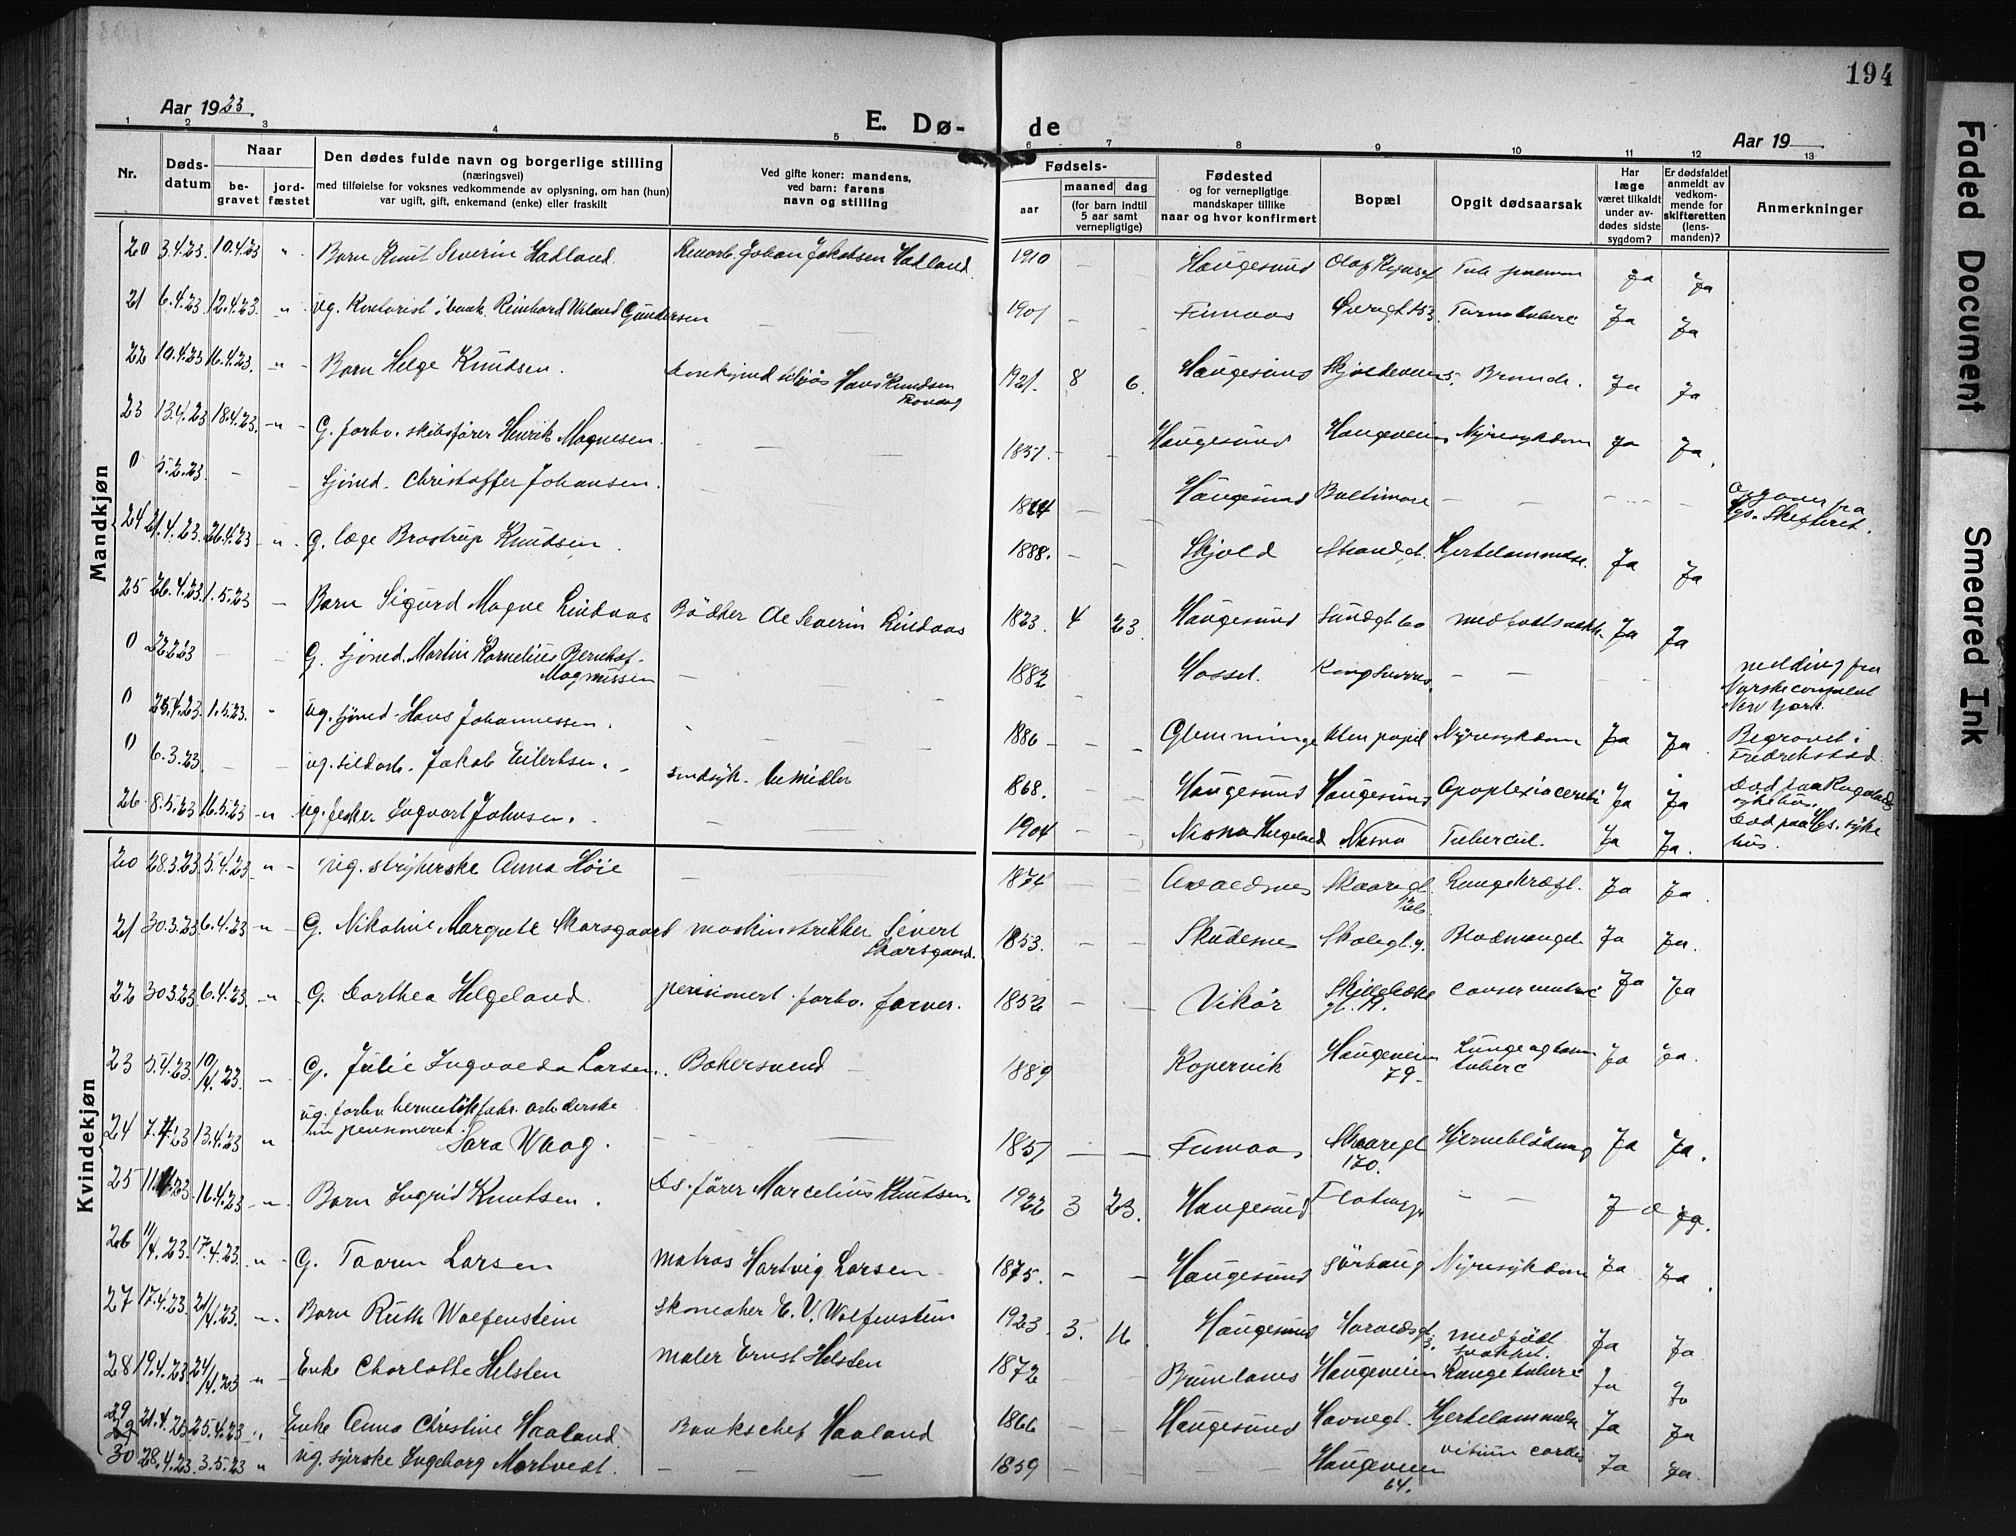 194
Aar 1923.
E. Dø-
de
Aar 19
1 2 3 4 5 6 7 8 9 10 11 12 13
Nr.
Døds-
datum
Naar
be-
gravet
jord-
fæstet
Den dødes fulde navn og borgerlige stilling
(næringsvei)
med tilføielse for voksnes vedkommende av oplysning, om han (hun)
var ugift, gift, enkemand (enke) eller fraskilt
Ved gifte koner: mandens,
ved barn: farens
navn og stilling
Fødsels-
aar
maaned
dag
(for barn indtil
5 aar samt
vernepligtige)
Fødested
og for vernepligtige
mandskaper tillike
naar og hvor konfirmert
Bopæl
Opgit dødsaarsak
Har
læge
været tilkaldt
under av-
dødes sidste
sygdom?
Er dødsfaldet
anmeldt av
vedkom-
mende for
skifteretten
(lens-
manden)?
Anmerkninger
Mandkjøn
20 3.4.23. 10.4.23 " Barn Knut Severin Hadland. Johan Jakobsen Hadland. 1910 - - Haugesund Ja Ja
21 6.4.23. 12.4.23. -"- ug. Kontorist i bank. Reinhard Gundersen - 1901 - - Ja Ja
22 10.4.23 16.4.23. -"- Barn Helge Knudsen. Hans Knudsen 1921. 8 6. Haugesund Skjoldeveien 5. Ja Ja
23 13.4.23 18.4.23. -"- G. forhv. skibsfører Henrik Magnesen. - - 1857. - - Haugesund Haugeveien Nyresykdom Ja Ja.
0 5.2.23 - Sjömd. Christoffer Johansen. - Haugesund Baltimore - - - - - Opgave fra
Hgs. Skifteret.
24 21.4.23. 26.4.23 -"- G. læge Brostrup Knudsen. - - 1888. - - Skjold Strandgt. Hjertelammelse. Ja Ja
25 26.4.23. 1.5.23 - Barn Sigurd Magne Lindaas Bödker Severin Lindaas 1823. 4 23. Haugesund Ja Ja
0 22.2.23 - - G. sjömd. Martin Kornelius Bernhof-
Magnussen - - 1882 - - - - - melding fra
Norske consulat
New York.
0 25.4.23. 1.5.23. " ug. sjömd. Hans Johannessen. - 1886 - - - Glemminge Nyresykdom Ja Ja Begravet i
Fredrikstad.
0 6.3.23. - - ug. sildarb. Jakob Eilertsen. - sindsyk. bemidler 1868. - - Haugesund Haugesund Apoplexia cerebri Ja Ja Död paa Rogalands
sykehus.
26 8.5.23 16.5.23 -"- ug. Ingvart Johnsen. - - 1904 - - Nesna Helgeland Nesna Tubercul. Ja Ja. Död paa Hgs. syke
hus.
Kvindekjøn
20 28.3.23 5.4.23 -"- ug. strykerske Anna Höie - 1874 - - Avaldsnes Skaaregt. Lungekræft. Ja Ja.
21 30.3.23 6.4.23 -"- G. Nikoline Margrete Skarsgaard maskinstrikker Sivert
Skarsgaard. 1853. - - Skudenes Skolegt. 9. Blodmangel Ja Ja.
22 30.3.23 6.4.23. -"- G. Dorthea Helgeland. pensionert forhv. farver. 1852 - - Vikör Ja Ja
23 5.4.23. 10/4.23. -"- G. Julie Ingvalda Larsen. Bakersvend - 1889 Kopervik Haugeveien
79. Lunge og
tuberc Ja Ja.
24 7.4.23 13.4.23 " ug. forhv. hermetikfabr. arbeiderske
pensioneret.
Sara Waag. - - - 1857 - - Skaaregt
170. Hjerneblödning Ja Ja.
25 11.4.23 16.4.23 -"- Barn Ingrid Knutsen. Ds. förer Marcelius Knutsen. 1922 3 23. Haugesund - - Ja Ja.
26 11/4.23. 17.4.23. -"- G. Taaren Larsen matros Hartvig Larsen 1875. - - Haugesund Sörhaug Nyresykdom Ja Ja.
27 17.4.23. 21/4.23. -"- Barn Ruth Wolfenstein skomaker E. V. Wolfenstein 1923. 3. 16 Haugesund Haraldsgt. 3. medfödt
svakhet. Ja Ja
28 19.4.23 24/4.23 " Enke Charlotte Helsten maler Ernst Helsten 1872 - - Haugeveien Lungetuberc Ja Ja
29 21.4.23 25.4.23 " Enke Anna Christine Haaland. Bankschef Haaland 1866 - - Haugesund Havnegt. Hjertelammelse Ja Ja
30 28.4.23. 3.5.23 " ug. syerske Ingeborg Mortvedt. - - - 1859 - - Haugeveien
64. vitium cordis Ja Ja.
Faded Document
Smeared Ink